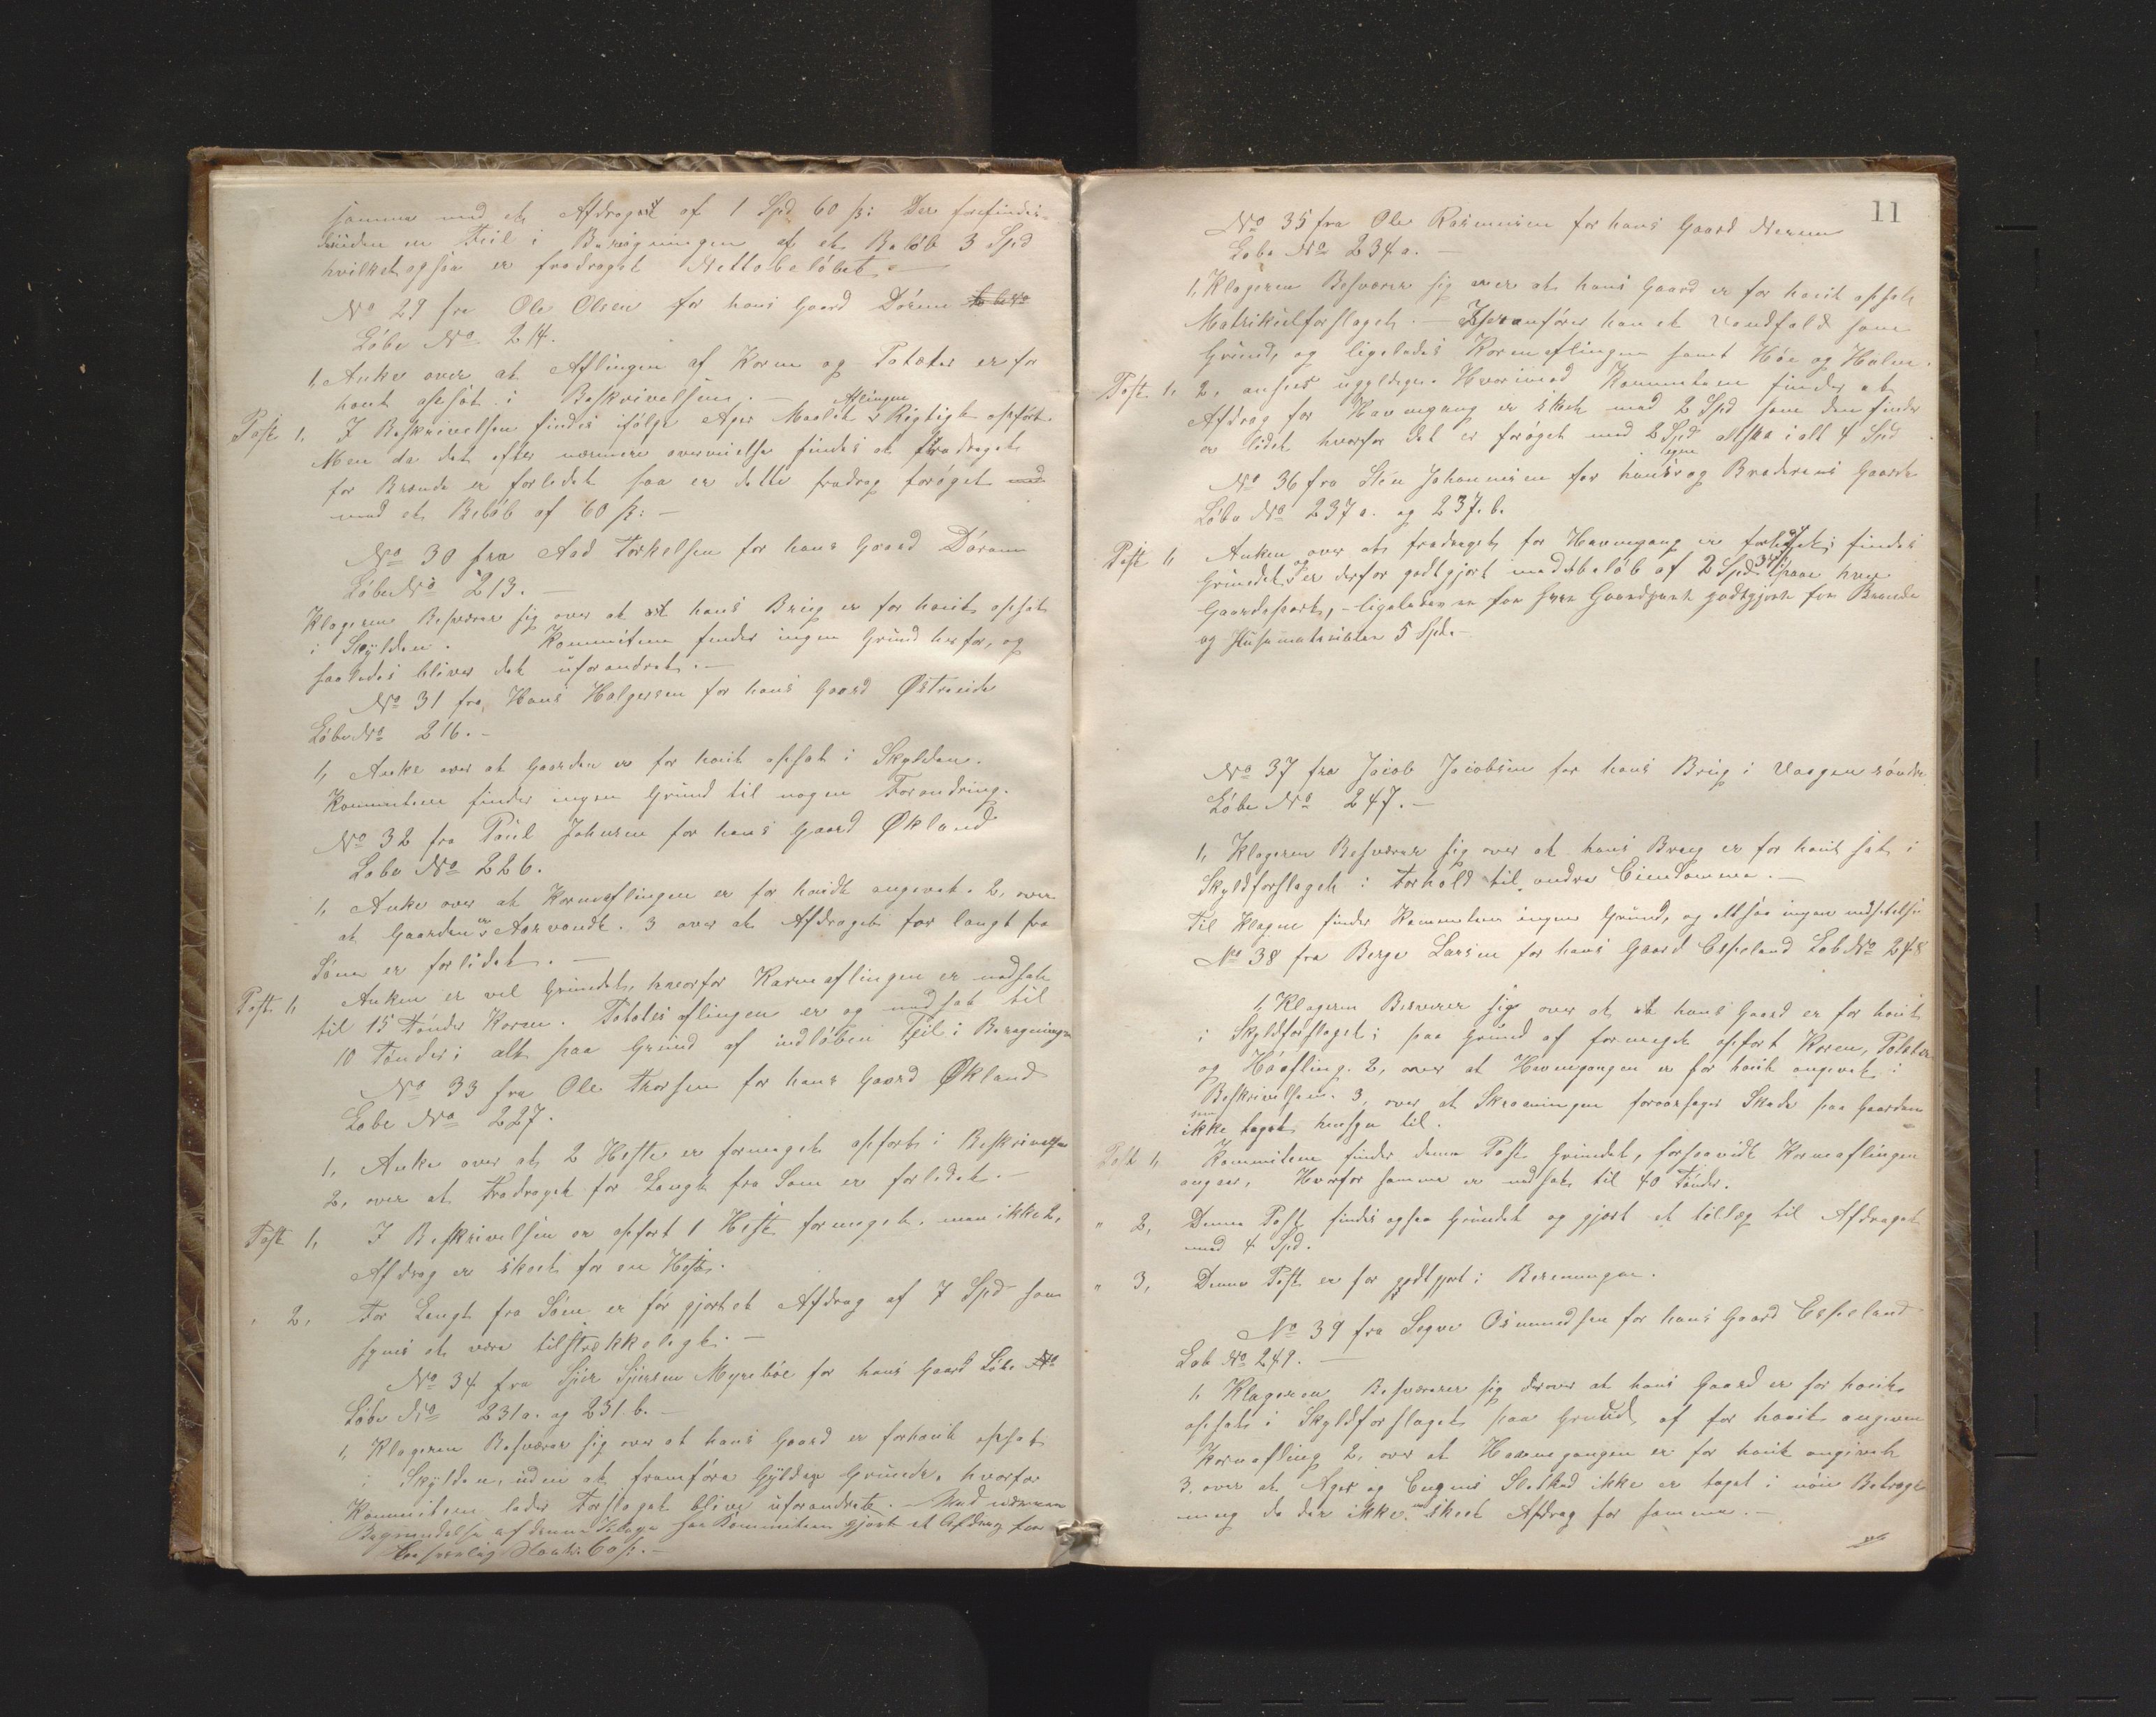 samme med et Afdrag af 1 Spd 60 ſz: Der forefindes
desuden en Feil i Beregningen af et Beløb 3 Spd
hvilket ogsaa er fradraget Nettobeløbet. —
No 29 fra Ole Olsen for hans Gaard Døsen
Løbe No 214.
1, Anke over at Aflingen af Korn og Potæter er for
høit opsat i Beskrivelsen. —
Post 1, I Beskrivelsen findes ifølge Ager Maalet Aflingen Rigtigt opført.
Men da det efter nærmere overveielse findes at fradraget
for Brænde er forlidet saa er dette fradrag forøget med
med et Beløb af 60 ſz: —
No 30 fra Aad Torkelsen for hans Gaard Døsen
Løbe No 213. —
Klageren Besværer sig over at hans Brug er for høit opsat
i Skylden. Kommiteen finder ingen Grund herfor, og
saaledes bliver det uforandret. —
No 31 fra Hans Holgersen for hans Gaard Østreide
Løbe No 216. —
1, Anke over at Gaarden er for høit opsat i Skylden.
Kommiteen finder ingen Grund til nogen Forandring.
No 32 fra Poul Johnsen for hans Gaard Økland
Løbe No 226.
1, Anke over at Kornaflingen er for høidt angivet. 2, over
at Gaarden er Aarvondt. 3 over at Afdraget for langt fra
Søen er forlidet. —
Post 1, Anken er vel Grundet, hvorfor Kornaflingen er nedsat
til 15 Tønder Korn. Potetesaflingen er og nedsat til
10 Tønder i alt paa Grund af indløben Feil i Beregningen
No 33 fra Ole Thorsen for hans Gaard Økland
Løbe No 227.
1, Anke over at 2 Heste er formeget opført i Beskrivelsen
2, over at Fradraget for Langt fra Søen er forlidet. —
Post 1, I Beskrivelsen er opført 1 Hest formeget, men ikke 2,
Afdrag er skeet for en Hest.
" 2, For Langt fra Søen er før gjort et Afdrag af 7 Spd som
synes at være tilstrækkeligt. —
No 34 fra Sjur Sjursen Myrebøe for hans Gaard Løbe No
Løbe No 231a. og 231.b. —
1, Klageren Besværer sig over at hans Gaard er forhøit opsat
i Skylden, uden at fremføre Gyldige Grunde, hvorfor
Kommiteen lader Forslaget blive uforandret. — Med nærmere
Begrundelse af denne Klage har Kommiteen gjort et Afdrag for
60 ſz. —
11
No 35 fra Ole Rasmusen for hans Gaard Nesen
Løbe No 234a. —
1, Klageren Besværer sig over at hans Gaard er for høit opsat
Matrikulforslaget. — Herom anfører han et Vandfald som
Grund, og ligeledes Kornaflingen samt Høe og Halm.
Post 1, 2, ansees ugyldige. Hvorimod Kommiteen finder at
Afdrag for Havnegang er skeet med 2 Spd som den finder
er lidet hvorfor det er forøget med 2 Spd altsaa i alt 4 Spd
No 36 fra Sten Johannesen for hans egen og Broderens Gaarde
Løbe No 237a. og 237.b.
Post 1, Anken over at fradraget for Havnegang er forlidet; findes
Grundet, og er derfor godtgjort med et beløb af 2 Spd paa hver
Gaardepart, — ligeledes er for hver Gaardpart godtgjort for Brende
og Husematerialer 5 Spd. —
No 37 fra Jacob Jacobsen for hans Brug i Vaagen søndre
Løbe No 247. —
1, Klageren Besværer sig over at hans Brug er for høit sat i
Skyldforslaget i Forhold til andre Eiendomme. —
Til Klagen finder Kommiteen ingen Grund, og altsaa ingen nedsettelse
No 38 fra Berge Larsen for hans Gaard Espeland Løb No 248
1, Klageren Besværer sig over at hans Gaard er for høit
i Skyldforslaget; paa Grund af formeget opført Korn, Poteter
og Høafling. 2, over at Havnegangen er for høit angivet i
Beskrivelsen. 3, over at Skreninger foraarsager Skade paa Gaarden
som ikke taget hensyn til.
Post 1, Kommiteen finder denne Post Grundet, forsaavidt Kornaflingen
angaar, Hvorfor samme er nedsat til 40 Tønder.
" 2, Denne Post findes ogsaa Grundet og gjort et tillæg til Afdraget
med 4 Spd.
" 3, Denne Post er før godtgjort i Beregningen.
No 39 fra Segve Osmundsen for hans Gaard Espeland
Løb No 249. —
1, Klageren Besværer sig derover at hans Gaard er for høit
opsat i Skyldforslaget paa Grund af for høit angiven
Kornafling 2, over at Havnegangen er for høit angivet
3, over at Ager og Engens Slethed ikke er taget i nøie Betragt
ning da der ikke er skeet Afdrag for samme. —